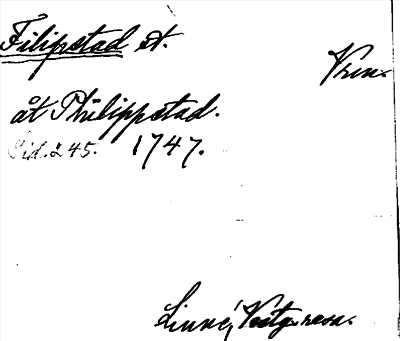 Filipstad st.
Vrm.
åt Philippstad.
Sid. 245. 1747.
Linné, Vestg. resa.